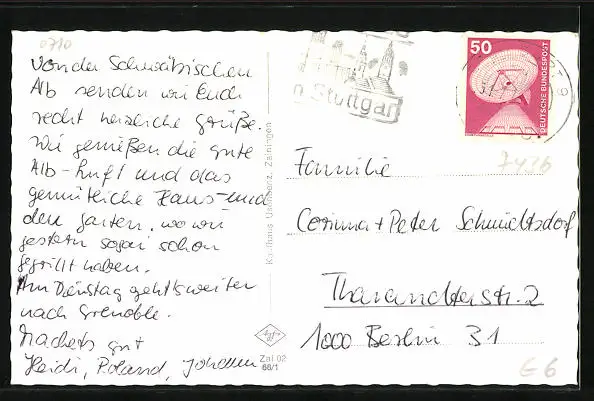 0710
von der Schwäbischen
Alb senden wir Euch
recht herzliche Grüße.
Wir genießen die gute
Alb-Luft und das
gemütliche Haus und
den Garten, wo wir
gestern sogar schon
gegrillt haben.
Am Dienstag geht's weiter
nach Grenoble.
Macht's gut
Heidi, Roland, Johannes
Kaufhaus
Zainingen
Zai 02
66/1
Stuttgart
50
DEUTSCHE BUNDESPOST
7436
Familie
Corinna + Peter Schmidtsdorf
Tharandterstr. 2
1000 Berlin 31
E6